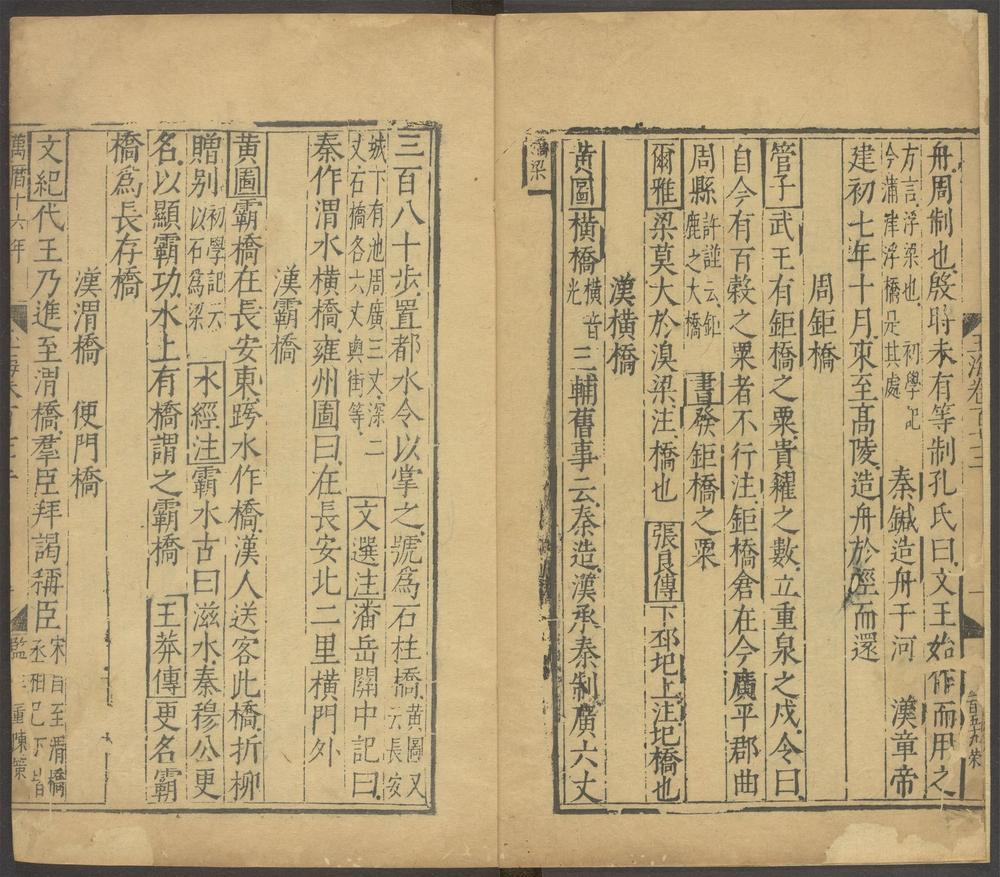 舟周制也殷時未有等制孔氏曰文王始作而用之
方言浮梁也初學記
今蒲津浮橋是其處
秦鍼造舟于河
漢章帝
建初七年十月東至高陵造舟於涇而還
周鉅橋
管子武王有鉅橋之粟貴糴之數立重泉之戍令曰
自今有百穀之粟者不行注鉅橋倉在今廣平郡曲
周縣
許謹云鉅
鹿之大橋
書發鉅橋之粟
爾雅梁莫大於湨梁注橋也
張良傳下邳圯上注圯橋也
漢橫橋
黃圖橫橋
橫音
光
三輔舊事云秦造漢承秦制廣六丈
梁
三百八十步置都水令以掌之號為石柱橋
黃圖又
云長安
城下有池周廣三丈深二
丈石橋各六丈與街等
文選注潘岳關中記曰
秦作渭水橫橋雍州圖曰在長安北二里橫門外
漢霸橋
黃圖霸橋在長安東跨水作橋漢人送客此橋折柳
贈別
初學記云
以石為梁
水經注霸水古曰滋水秦穆公更
名以顯霸功水上有橋謂之霸橋
王莽傳更名霸
橋為長存橋
漢渭橋
便門橋
文紀代王乃進至渭橋羣臣拜謁稱臣
宋昌至渭橋
丞相已下皆
萬曆十六年
監
陳策